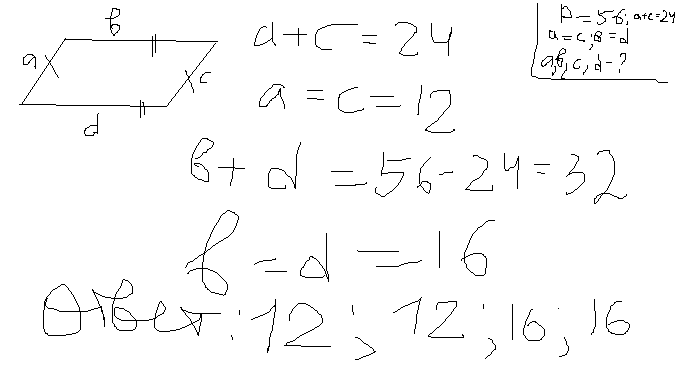 в
a
c
d
P=56; a+c=24
a=c; в=d
a, в, c, d-?
a+c=24
a=c=12
в+d=56-24=32
в=d=16
Ответ: 12; 12; 16; 16